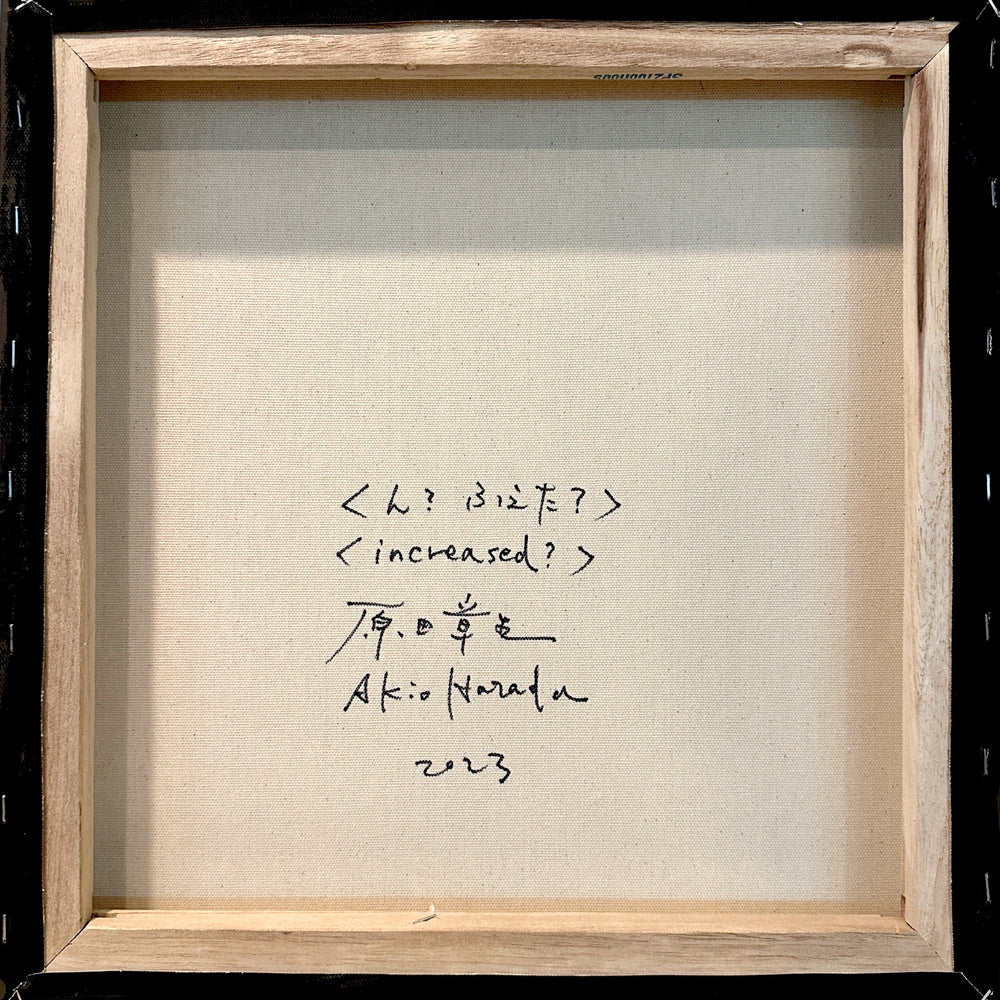 <ん？ ふえた？>
<increased?>
原田章生
Akio Harada
2023